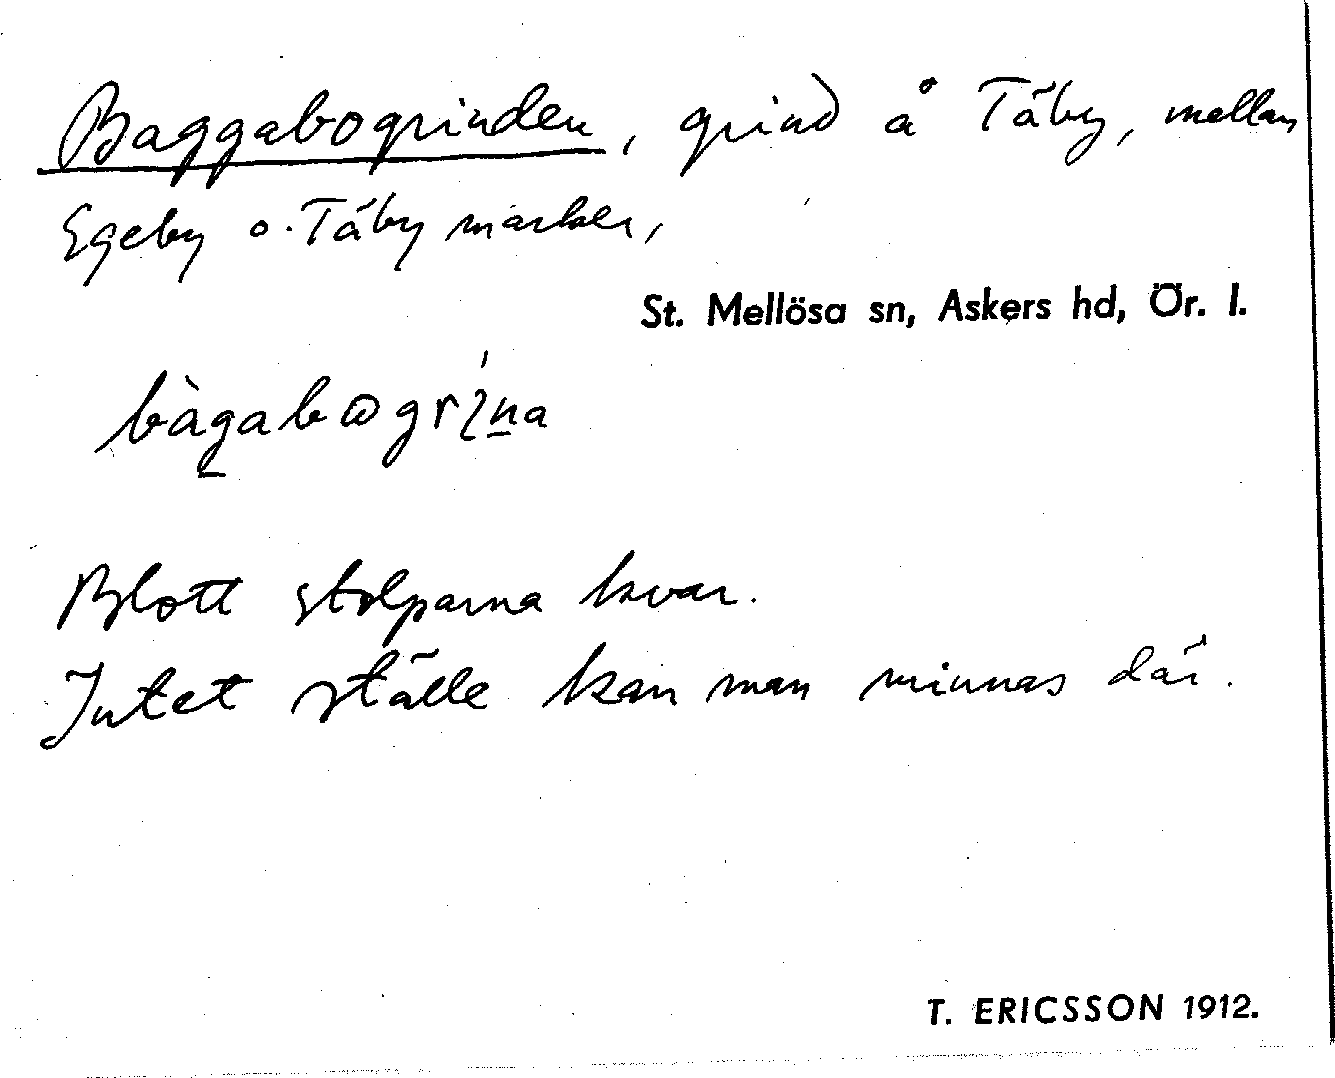 Baggabogrinden, grind å Täby, mellan
Egeby o. Täby marker,
St. Mellösa sn, Askers hd, Ör. l.
bàgabɷgrı̨́na
Blott stolparna kvar.
Intet ställe kan man minnas där.
T. ERICSSON 1912.